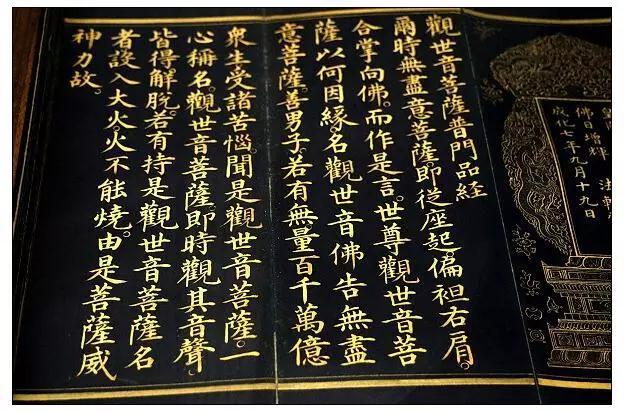 佛日增輝 法
成化七年九月十九日
觀世音菩薩普門品經
爾時無盡意菩薩即從座起偏袒右肩。
合掌向佛。而作是言。世尊觀世音菩
薩以何因緣。名觀世音佛告無盡
意菩薩。善男子。若有無量百千萬億
衆生受諸苦惱。聞是觀世音菩薩。一
心稱名。觀世音菩薩即時觀其音聲
皆得解脫。若有持是觀世音菩薩名
者設入大火。火不能燒。由是菩薩威
神力故。